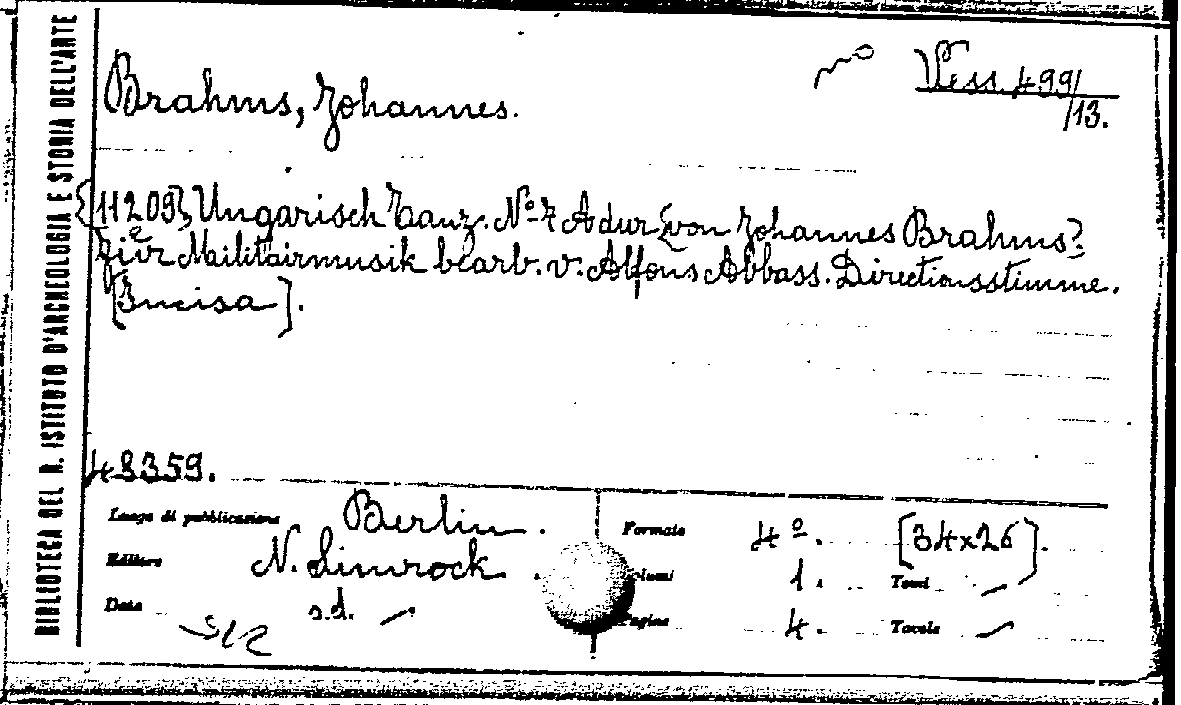 BIBLIOTECA DEL R. ISTITUTO D'ARCHEOLOGIA E STORIA DELL'ARTE
Vess. 499/
/13.
Brahms, Johannes.
{11209}, Ungarisch Tanz. Nº 7 A dur {von Johannes Brahms?
Für Militairmusik bearb. v. Alfons Abbass. Directionsstimme.
[Incisa].
48359.
Luogo di pubblicazione Berlin.
Editore N. Simrock.
Data s.d. —
Formato 4º. [34x26].
Volumi 1. Tomi —
Pagine 4. Tavole —